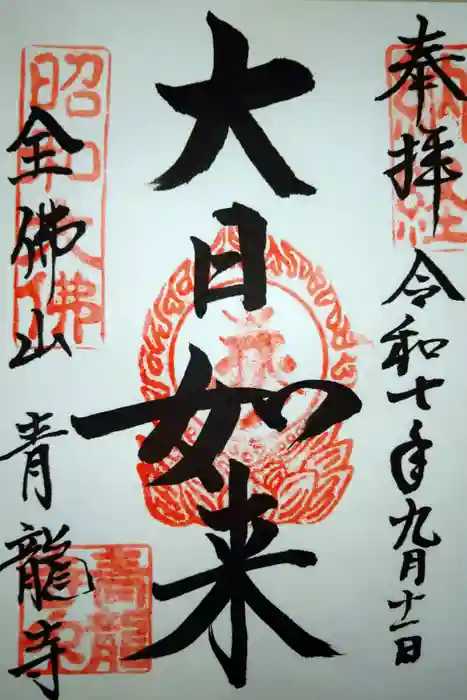 奉拝 令和七年九月十一日
大日如来
全佛山 青龍寺
昭和大佛
青龍